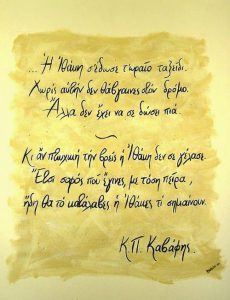 ... Ἡ Ἰθάκη σ' ἔδωσε τ' ὡραῖο ταξείδι.
Χωρὶς αὐτὴν δὲν θἄβγαινες στὸν δρόμο.
Ἄλλα δὲν ἔχει νὰ σὲ δώσει πιά.
Κι ἂν πτωχικὴ τὴν βρεῖς ἡ Ἰθάκη δὲν σὲ γέλασε.
Ἔτσι σοφὸς ποὺ ἔγινες, μὲ τόση πείρα,
ἤδη θὰ τὸ κατάλαβες ἡ Ἰθάκες τί σημαίνουν.
Κ.Π. Καβάφης.